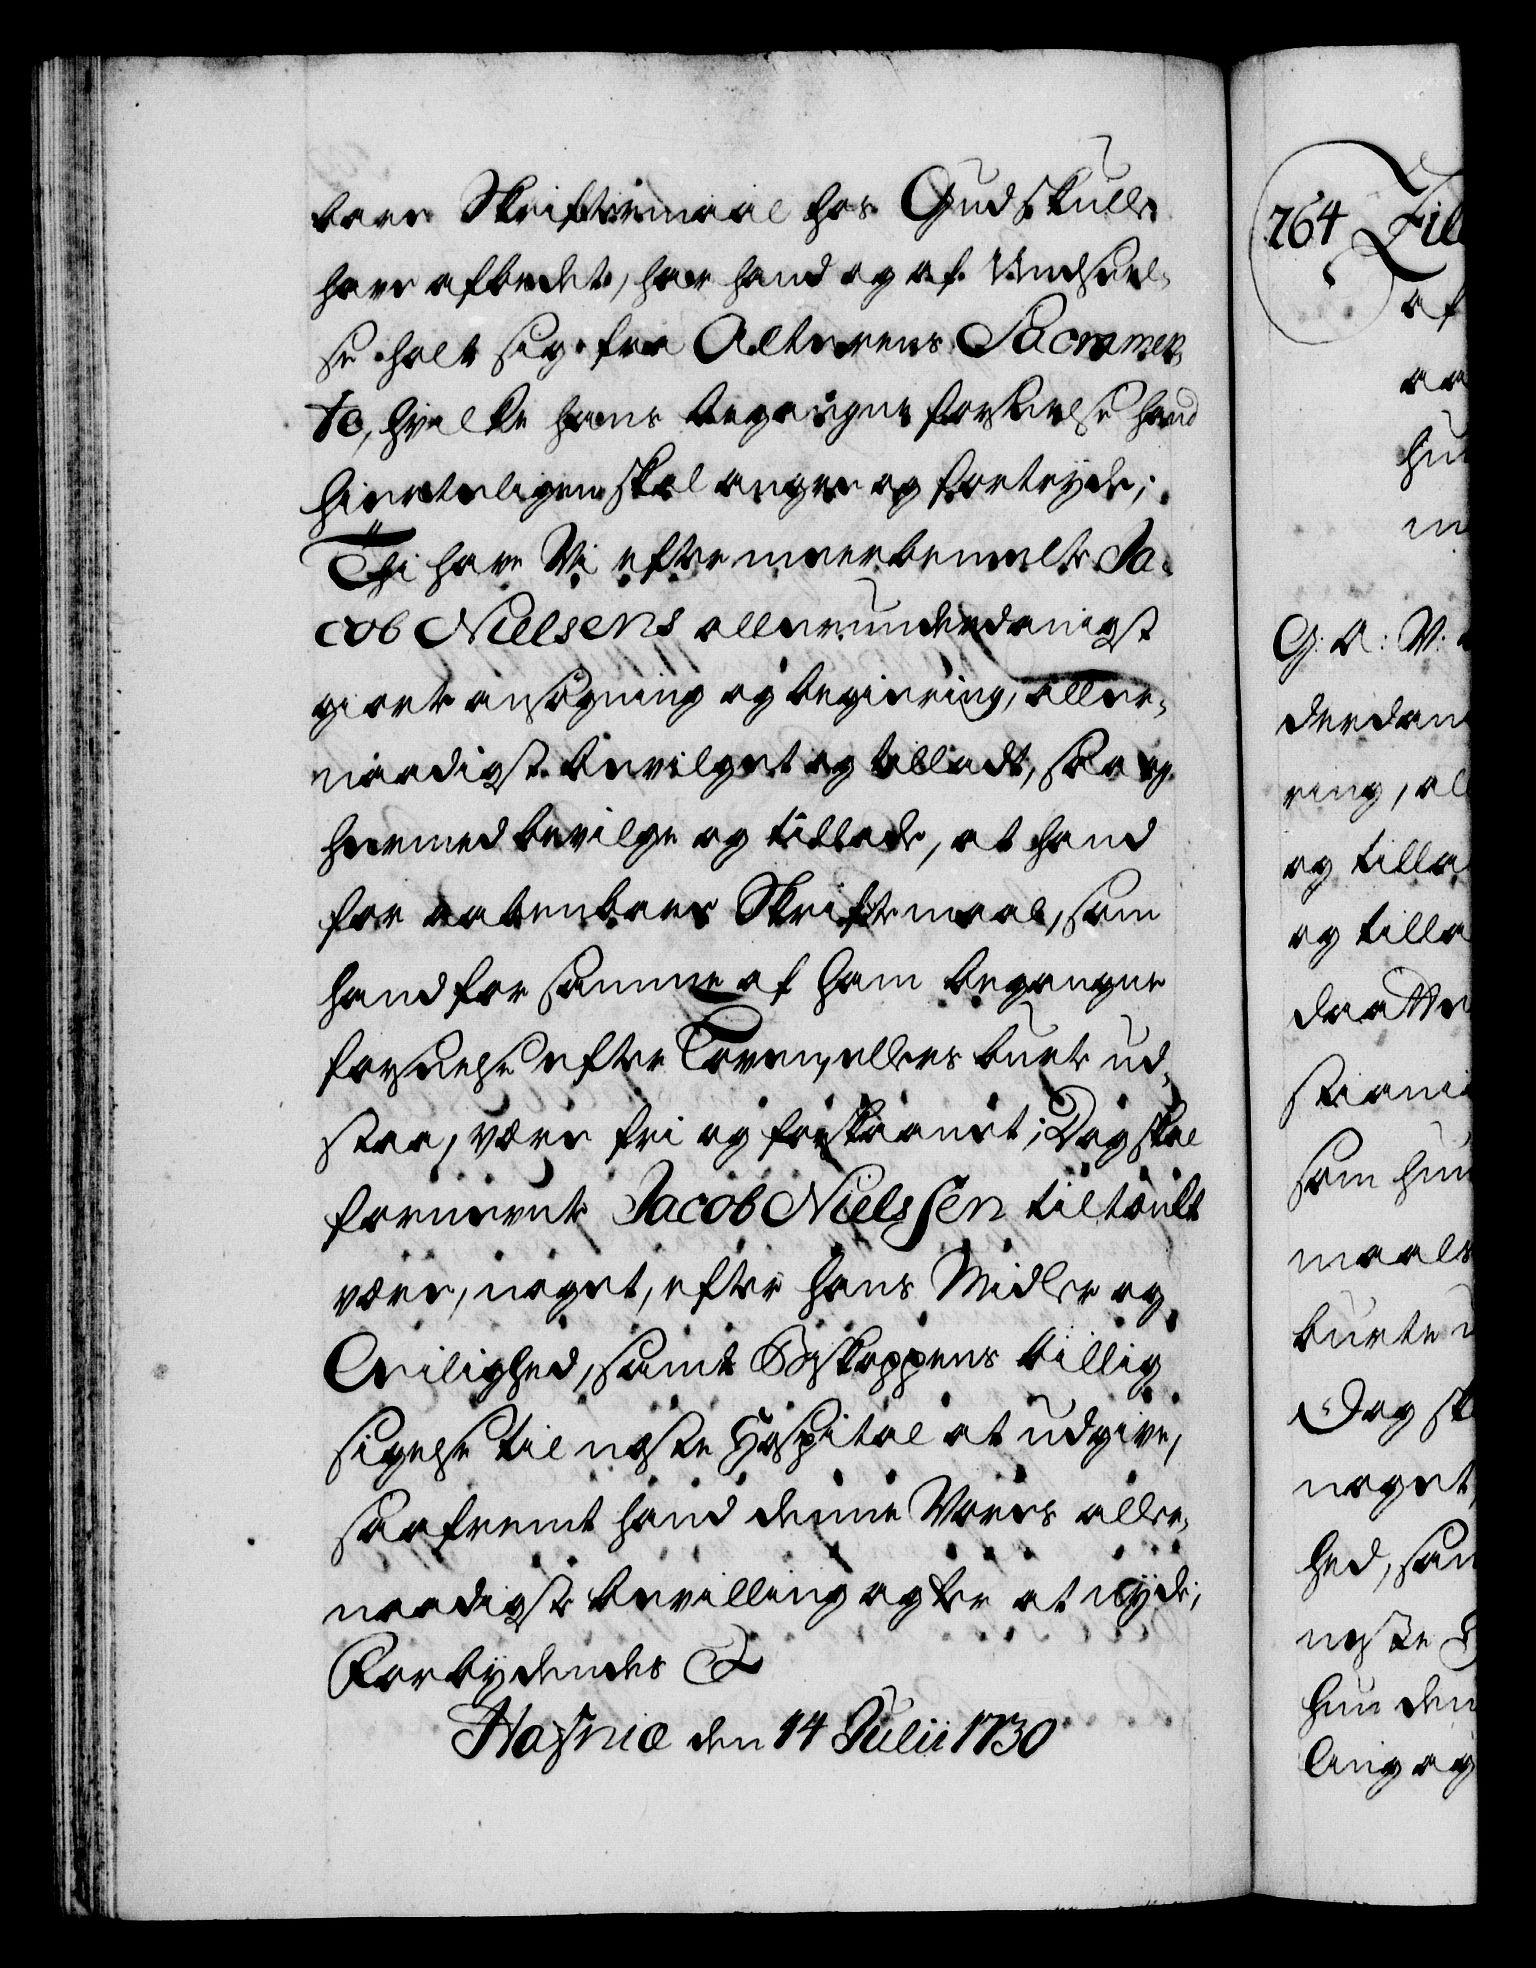 bare Skriftemaal hos Gud skulle
have afbedet, har hand og af Undseel-
se holt sig fra Alterens Sacramen-
te, hvilke hans begangne forseelse hand
hierteligen skal angre og fortryde;
Thi have Vi efter meerbemelte Ja-
cob Nielsens allerunderdanigst
giorte ansøgning og begiering, aller-
naadigst bevilget og tilladt, saa og
hermed bevilge og tillade, at hand
for aabenbare Skriftemaal, som
hand for samme af ham begangne
forseelse efter Loven ellers burte ud-
staa, være fri og forskaanet; Dog skal
fornevnte Jacob Nielssen tiltenkt
være, noget, efter hans Midler og
Leilighed, samt Biskoppens billig
sigelse til neste Hospital at udgive,
saafremt hand denne Vores aller-
naadigste bevilling agter at nyde;
Forbydendes &
Hafniæ den 14 Julii 1730
764 Till
af
aa
hu
m
G: A: V:
derdan
ring, al
og tilla
og tilla
daatte
stiani
som hun
maale
burte u
Dog sk
noget,
hed, sam
neste H
hun den
ling ag